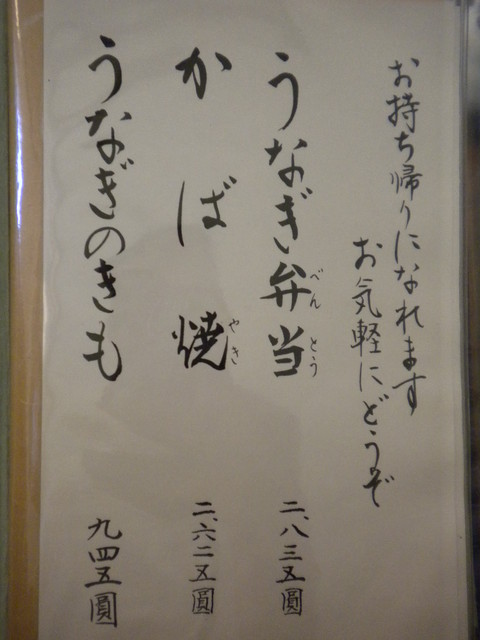 お持ち帰りになれます
お気軽にどうぞ
うなぎ弁当 二、八三五圓
べんとう
かば焼 二、六二五圓
やき
うなぎのきも 九四五圓